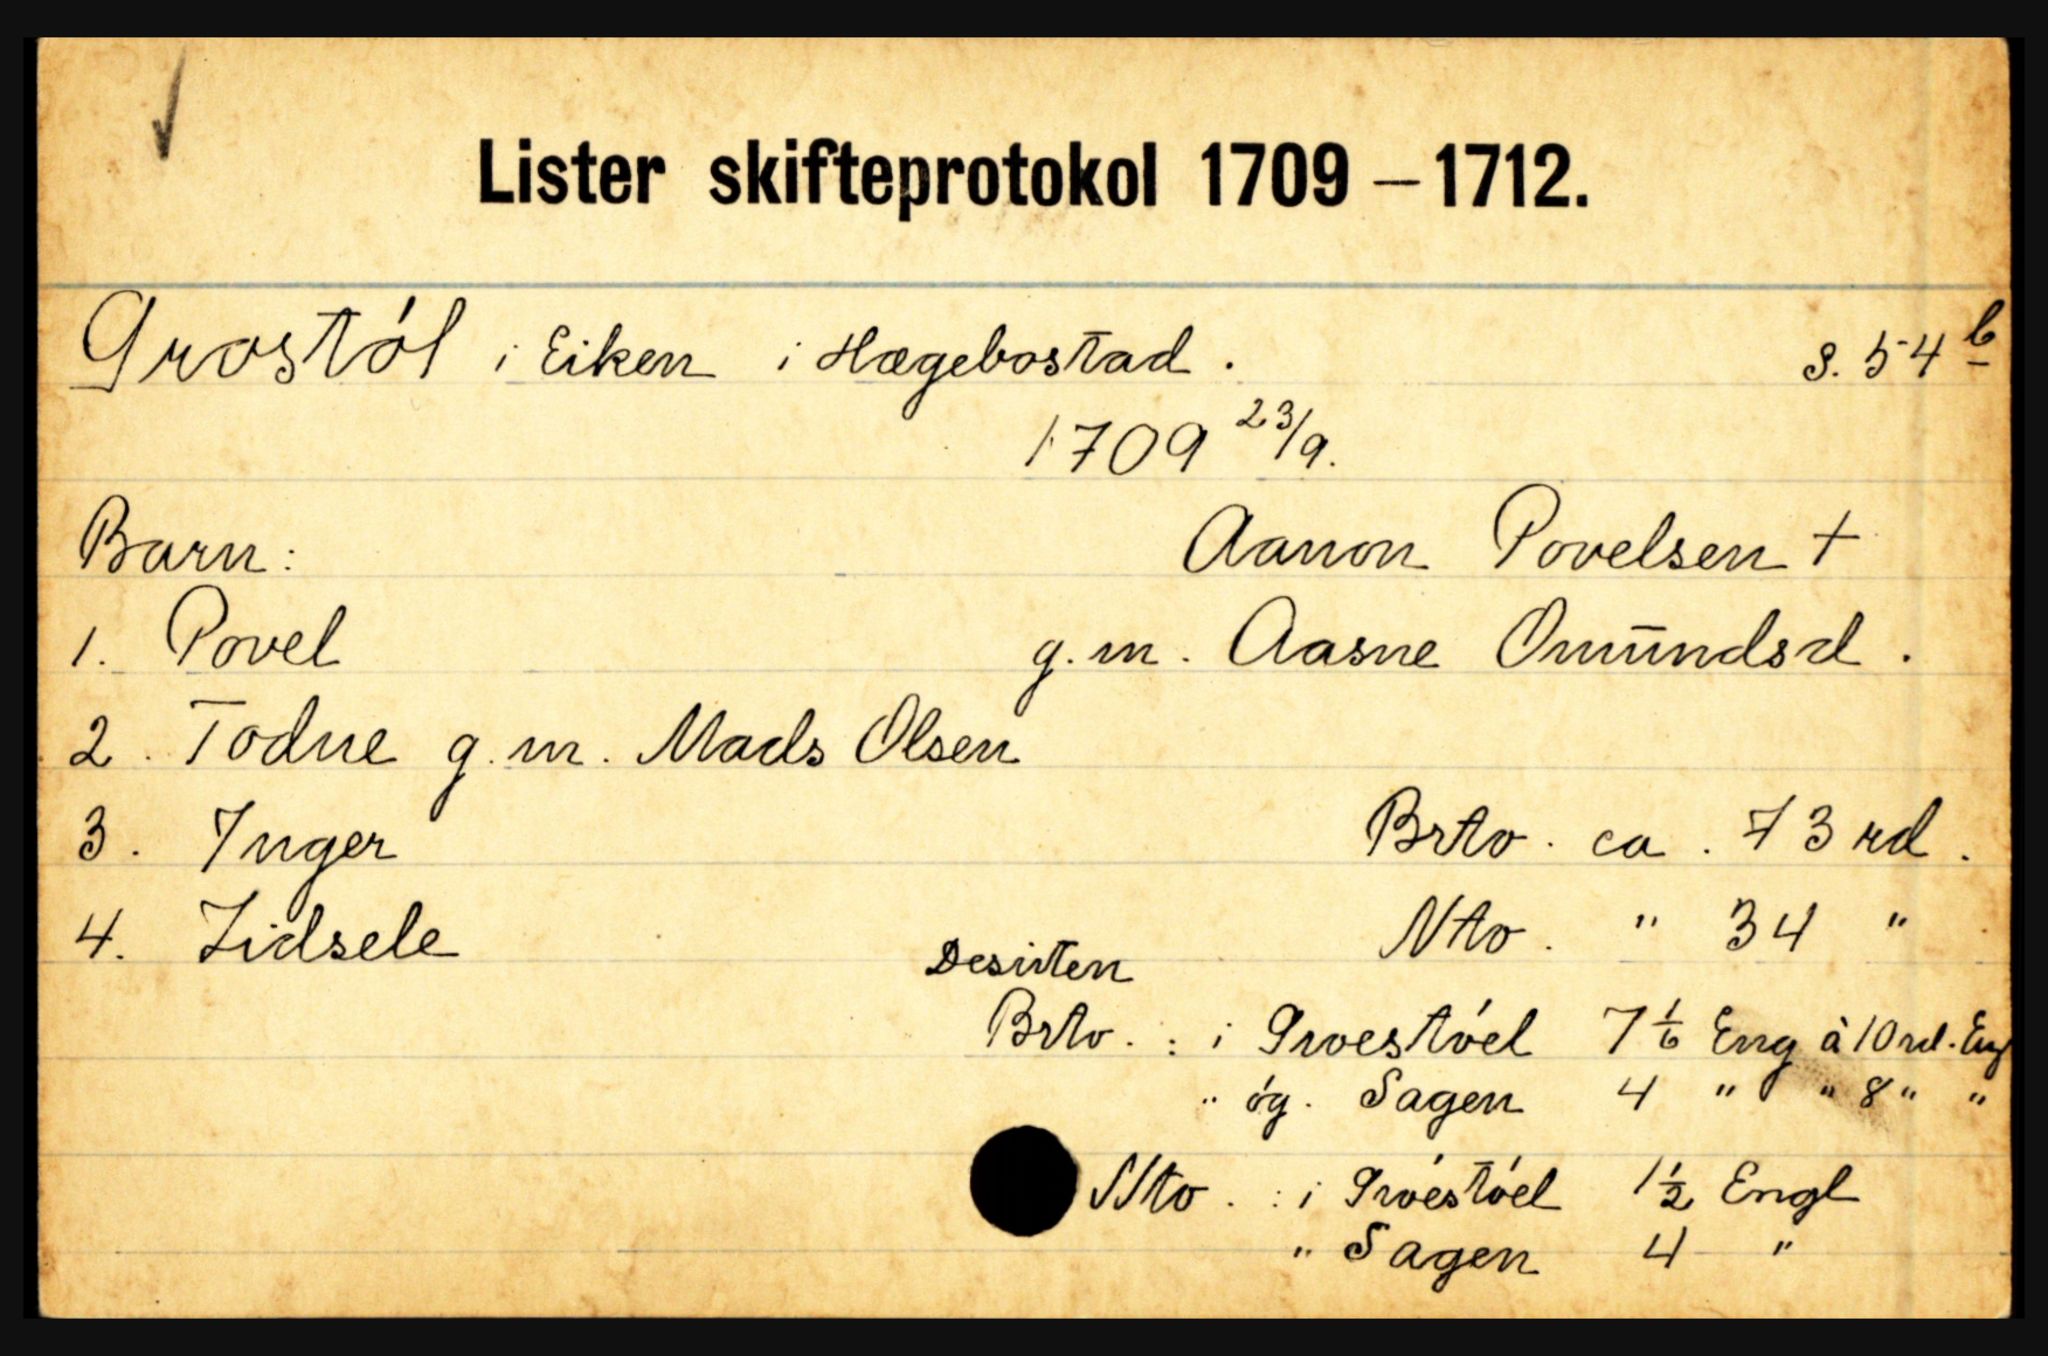 Lister skifteprotokol 1709 – 1712.
Grostól i Eiken i Hægebostad. S. 54 b
1709 23/9.
Barn: Aanon Povelsen +
1. Povel g. m. Aasne Omūndsd.
2. Todne g. m. Mads Olsen
3. Inger Brto. ca. 73 rd.
4. Zidsele Nto. " 34 "
Desuten
Brto. : i Groestóel 7 1/6 Eng à 10 rd. Eng
" óg. Sagen 4 " " 8 " "
Nto. : i Gróestóel 1 1/2 Engl
" Sagen 4 "